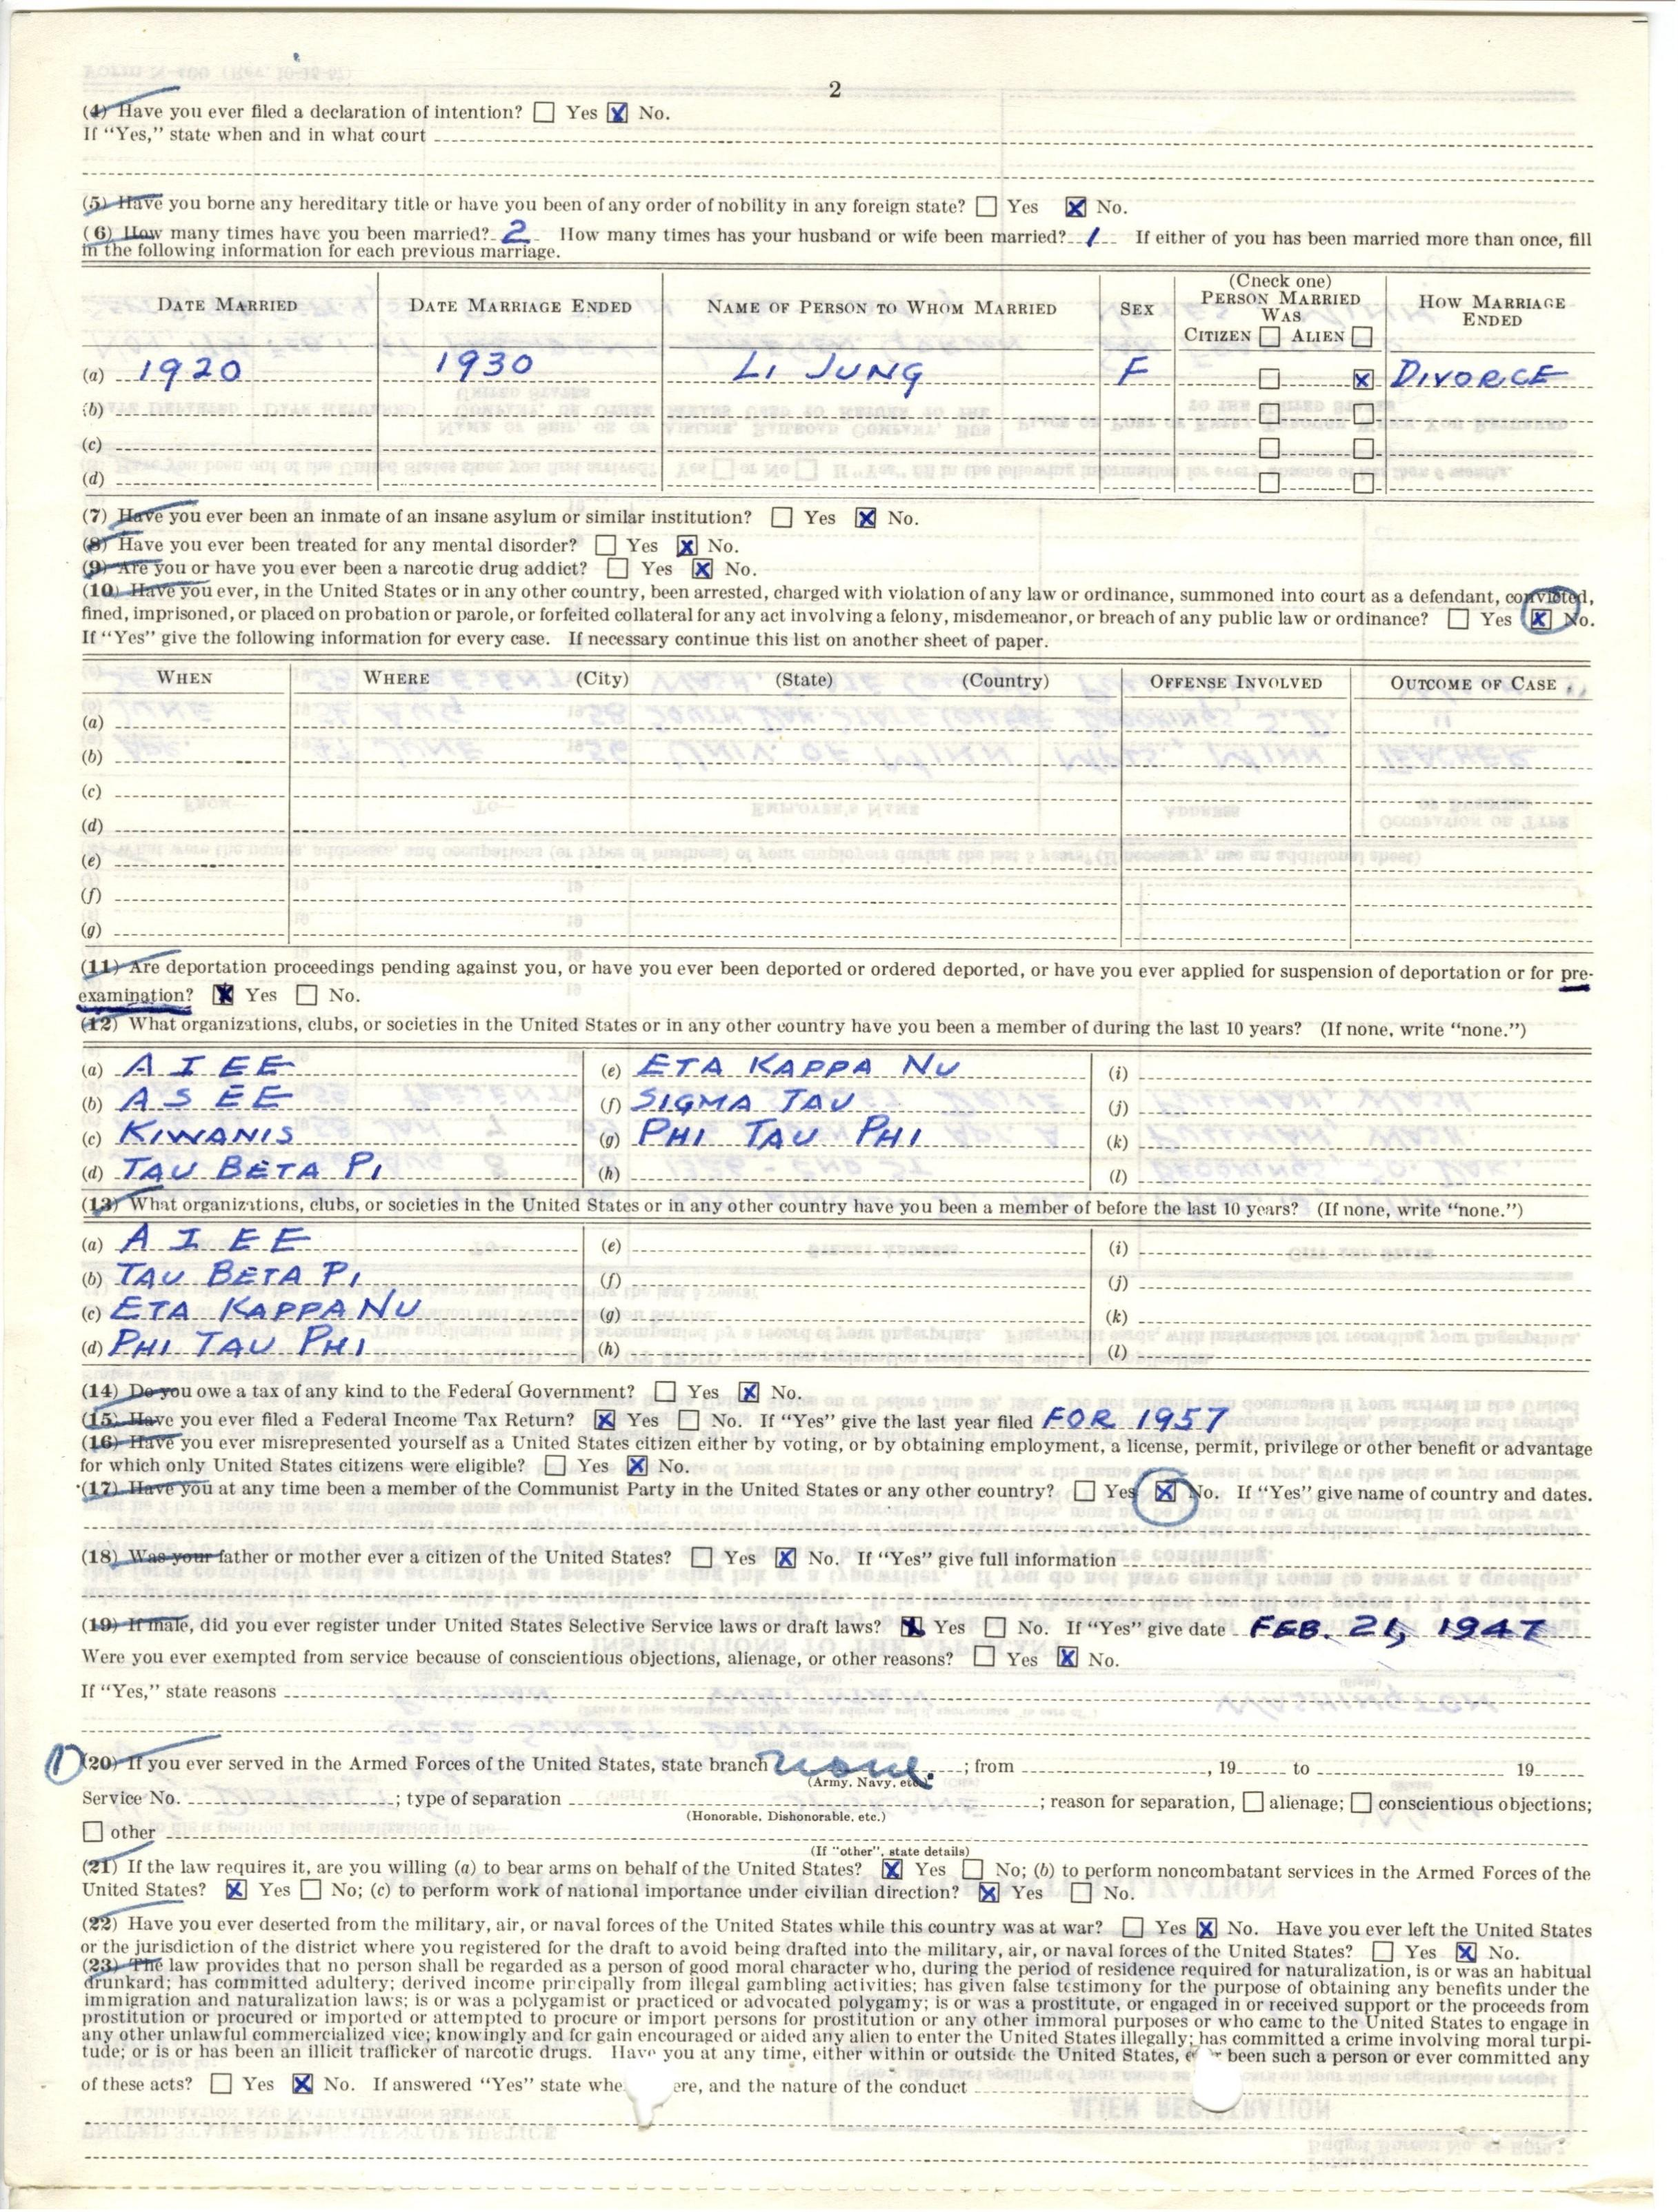 2
(4) Have you ever filed a declaration of intention? ☐ Yes ☒ No.
If "Yes," state when and in what court
(5) Have you borne any hereditary title or have you been of any order of nobility in any foreign state? ☐ Yes ☒ No.
(6) How many times have you been married? 2 How many times has your husband or wife been married? 1 If either of you has been married more than once, fill
in the following information for each previous marriage.
DATE MARRIED DATE MARRIAGE ENDED NAME OF PERSON TO WHOM MARRIED SEX (Check one) PERSON MARRIED WAS CITIZEN ☐ ALIEN ☐ HOW MARRIAGE ENDED
(a) 1920 1930 LI JUNG F ☐ ☒ DIVORCE
(b) ☐ ☐
(c) ☐ ☐
(d) ☐ ☐
(7) Have you ever been an inmate of an insane asylum or similar institution? ☐ Yes ☒ No.
(8) Have you ever been treated for any mental disorder? ☐ Yes ☒ No.
(9) Are you or have you ever been a narcotic drug addict? ☐ Yes ☒ No.
(10) Have you ever, in the United States or in any other country, been arrested, charged with violation of any law or ordinance, summoned into court as a defendant, convicted,
fined, imprisoned, or placed on probation or parole, or forfeited collateral for any act involving a felony, misdemeanor, or breach of any public law or ordinance? ☐ Yes ☒ No.
If "Yes" give the following information for every case. If necessary continue this list on another sheet of paper.
WHEN WHERE (City) (State) (Country) OFFENSE INVOLVED OUTCOME OF CASE
(a)
(b)
(c)
(d)
(e)
(f)
(g)
(11) Are deportation proceedings pending against you, or have you ever been deported or ordered deported, or have you ever applied for suspension of deportation or for pre-
examination? ☒ Yes ☐ No.
(12) What organizations, clubs, or societies in the United States or in any other country have you been a member of during the last 10 years? (If none, write "none.")
(a) A I E E (e) ETA KAPPA NU (i)
(b) A S E E (f) SIGMA TAU (j)
(c) KIWANIS (g) PHI TAU PHI (k)
(d) TAU BETA PI (h) (l)
(13) What organizations, clubs, or societies in the United States or in any other country have you been a member of before the last 10 years? (If none, write "none.")
(a) A I E E (e) (i)
(b) TAU BETA PI (f) (j)
(c) ETA KAPPA NU (g) (k)
(d) PHI TAU PHI (h) (l)
(14) Do you owe a tax of any kind to the Federal Government? ☐ Yes ☒ No.
(15) Have you ever filed a Federal Income Tax Return? ☒ Yes ☐ No. If "Yes" give the last year filed FOR 1957
(16) Have you ever misrepresented yourself as a United States citizen either by voting, or by obtaining employment, a license, permit, privilege or other benefit or advantage
for which only United States citizens were eligible? ☐ Yes ☒ No.
(17) Have you at any time been a member of the Communist Party in the United States or any other country? ☐ Yes ☒ No. If "Yes" give name of country and dates.
(18) Was your father or mother ever a citizen of the United States? ☐ Yes ☒ No. If "Yes" give full information
(19) If male, did you ever register under United States Selective Service laws or draft laws? ☒ Yes ☐ No. If "Yes" give date FEB. 21, 1947
Were you ever exempted from service because of conscientious objections, alienage, or other reasons? ☐ Yes ☒ No.
If "Yes," state reasons
1 (20) If you ever served in the Armed Forces of the United States, state branch none. ; from , 19 to 19
(Army, Navy, etc.)
Service No. ; type of separation ; reason for separation, ☐ alienage; ☐ conscientious objections;
(Honorable, Dishonorable, etc.)
☐ other
(If "other", state details)
(21) If the law requires it, are you willing (a) to bear arms on behalf of the United States? ☒ Yes ☐ No; (b) to perform noncombatant services in the Armed Forces of the
United States? ☒ Yes ☐ No; (c) to perform work of national importance under civilian direction? ☒ Yes ☐ No.
(22) Have you ever deserted from the military, air, or naval forces of the United States while this country was at war? ☐ Yes ☒ No. Have you ever left the United States
or the jurisdiction of the district where you registered for the draft to avoid being drafted into the military, air, or naval forces of the United States? ☐ Yes ☒ No.
(23) The law provides that no person shall be regarded as a person of good moral character who, during the period of residence required for naturalization, is or was an habitual
drunkard; has committed adultery; derived income principally from illegal gambling activities; has given false testimony for the purpose of obtaining any benefits under the
immigration and naturalization laws; is or was a polygamist or practiced or advocated polygamy; is or was a prostitute, or engaged in or received support or the proceeds from
prostitution or procured or imported or attempted to procure or import persons for prostitution or any other immoral purposes or who came to the United States to engage in
any other unlawful commercialized vice; knowingly and for gain encouraged or aided any alien to enter the United States illegally; has committed a crime involving moral turpi-
tude; or is or has been an illicit trafficker of narcotic drugs. Have you at any time, either within or outside the United States, been such a person or ever committed any
of these acts? ☐ Yes ☒ No. If answered "Yes" state whe ere, and the nature of the conduct